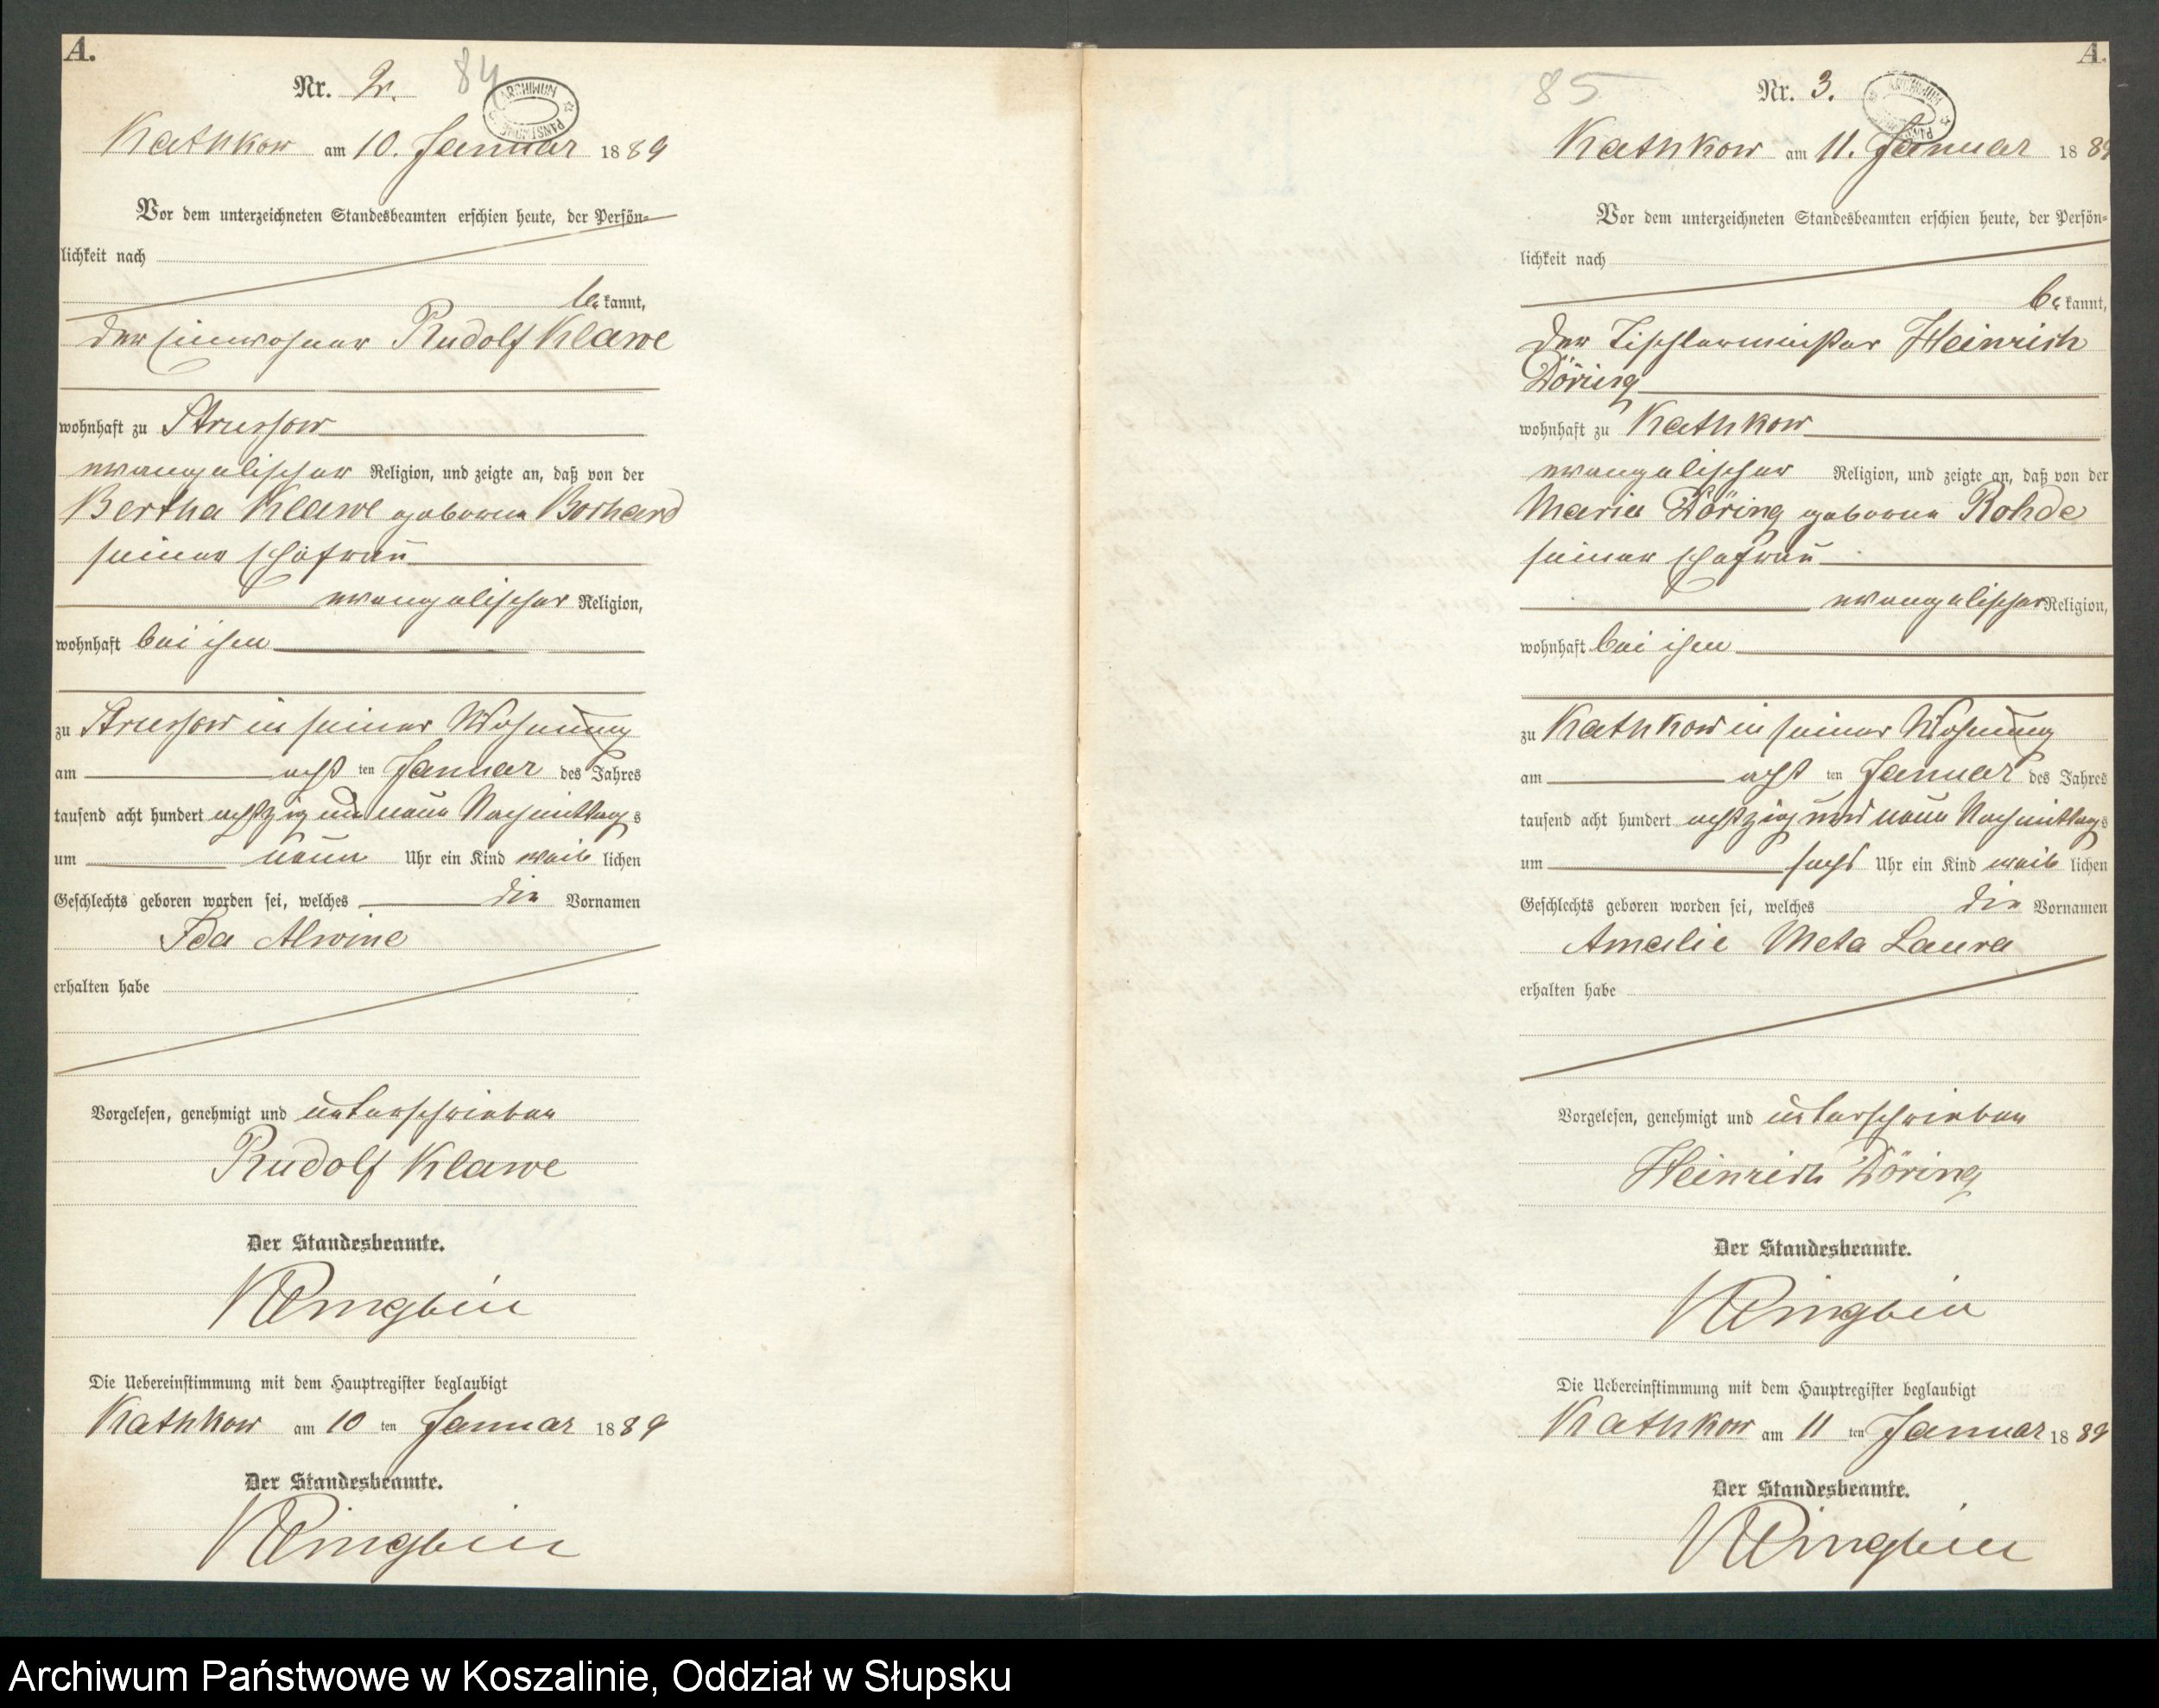 A.
Nr. 2.
84
ARCHIWUM PAŃSTWOWE
Kathkow am 10. Januar 1889
Vor dem unterzeichneten Standesbeamten erschien heute, der Persön-
lichkeit nach
bekannt,
der Einwohner Rudolf Klawe
wohnhaft zu Strussow
evangelischer Religion, und zeigte an, daß von der
Bertha Klawe geborene Borhard
seiner Ehefrau
evangelischer Religion,
wohnhaft bei ihm
zu Strussow in seiner Wohnung
am acht ten Januar des Jahres
tausend acht hundert achtzig und neun Nachmittags
um neun Uhr ein Kind weiblichen
Geschlechts geboren worden sei, welches die Vornamen
Ida Alwine
erhalten habe
Vorgelesen, genehmigt und unterschrieben
Rudolf Klawe
Der Standesbeamte.
Die Uebereinstimmung mit dem Hauptregister beglaubigt
Kathkow am 10 ten Januar 1889
Der Standesbeamte.
A.
85
Nr. 3.
ARCHIWUM
Kathkow am 11. Januar 1889
Vor dem unterzeichneten Standesbeamten erschien heute, der Persön-
lichkeit nach
bekannt,
der Tischlermeister Heinrich
Döring
wohnhaft zu Kathkow
evangelischer Religion, und zeigte an, daß von der
Maria Döring geborene Rohde
seiner Ehefrau
evangelischer Religion,
wohnhaft bei ihm
zu Kathkow in seiner Wohnung
am acht ten Januar des Jahres
tausend acht hundert achtzig und neun Nachmittags
um sechs Uhr ein Kind weiblichen
Geschlechts geboren worden sei, welches die Vornamen
Amalie Meta Laura
erhalten habe
Vorgelesen, genehmigt und unterschrieben
Heinrich Döring
Der Standesbeamte.
Die Uebereinstimmung mit dem Hauptregister beglaubigt
Kathkow am 11 ten Januar 1889
Der Standesbeamte.
Archiwum Państwowe w Koszalinie, Oddział w Słupsku